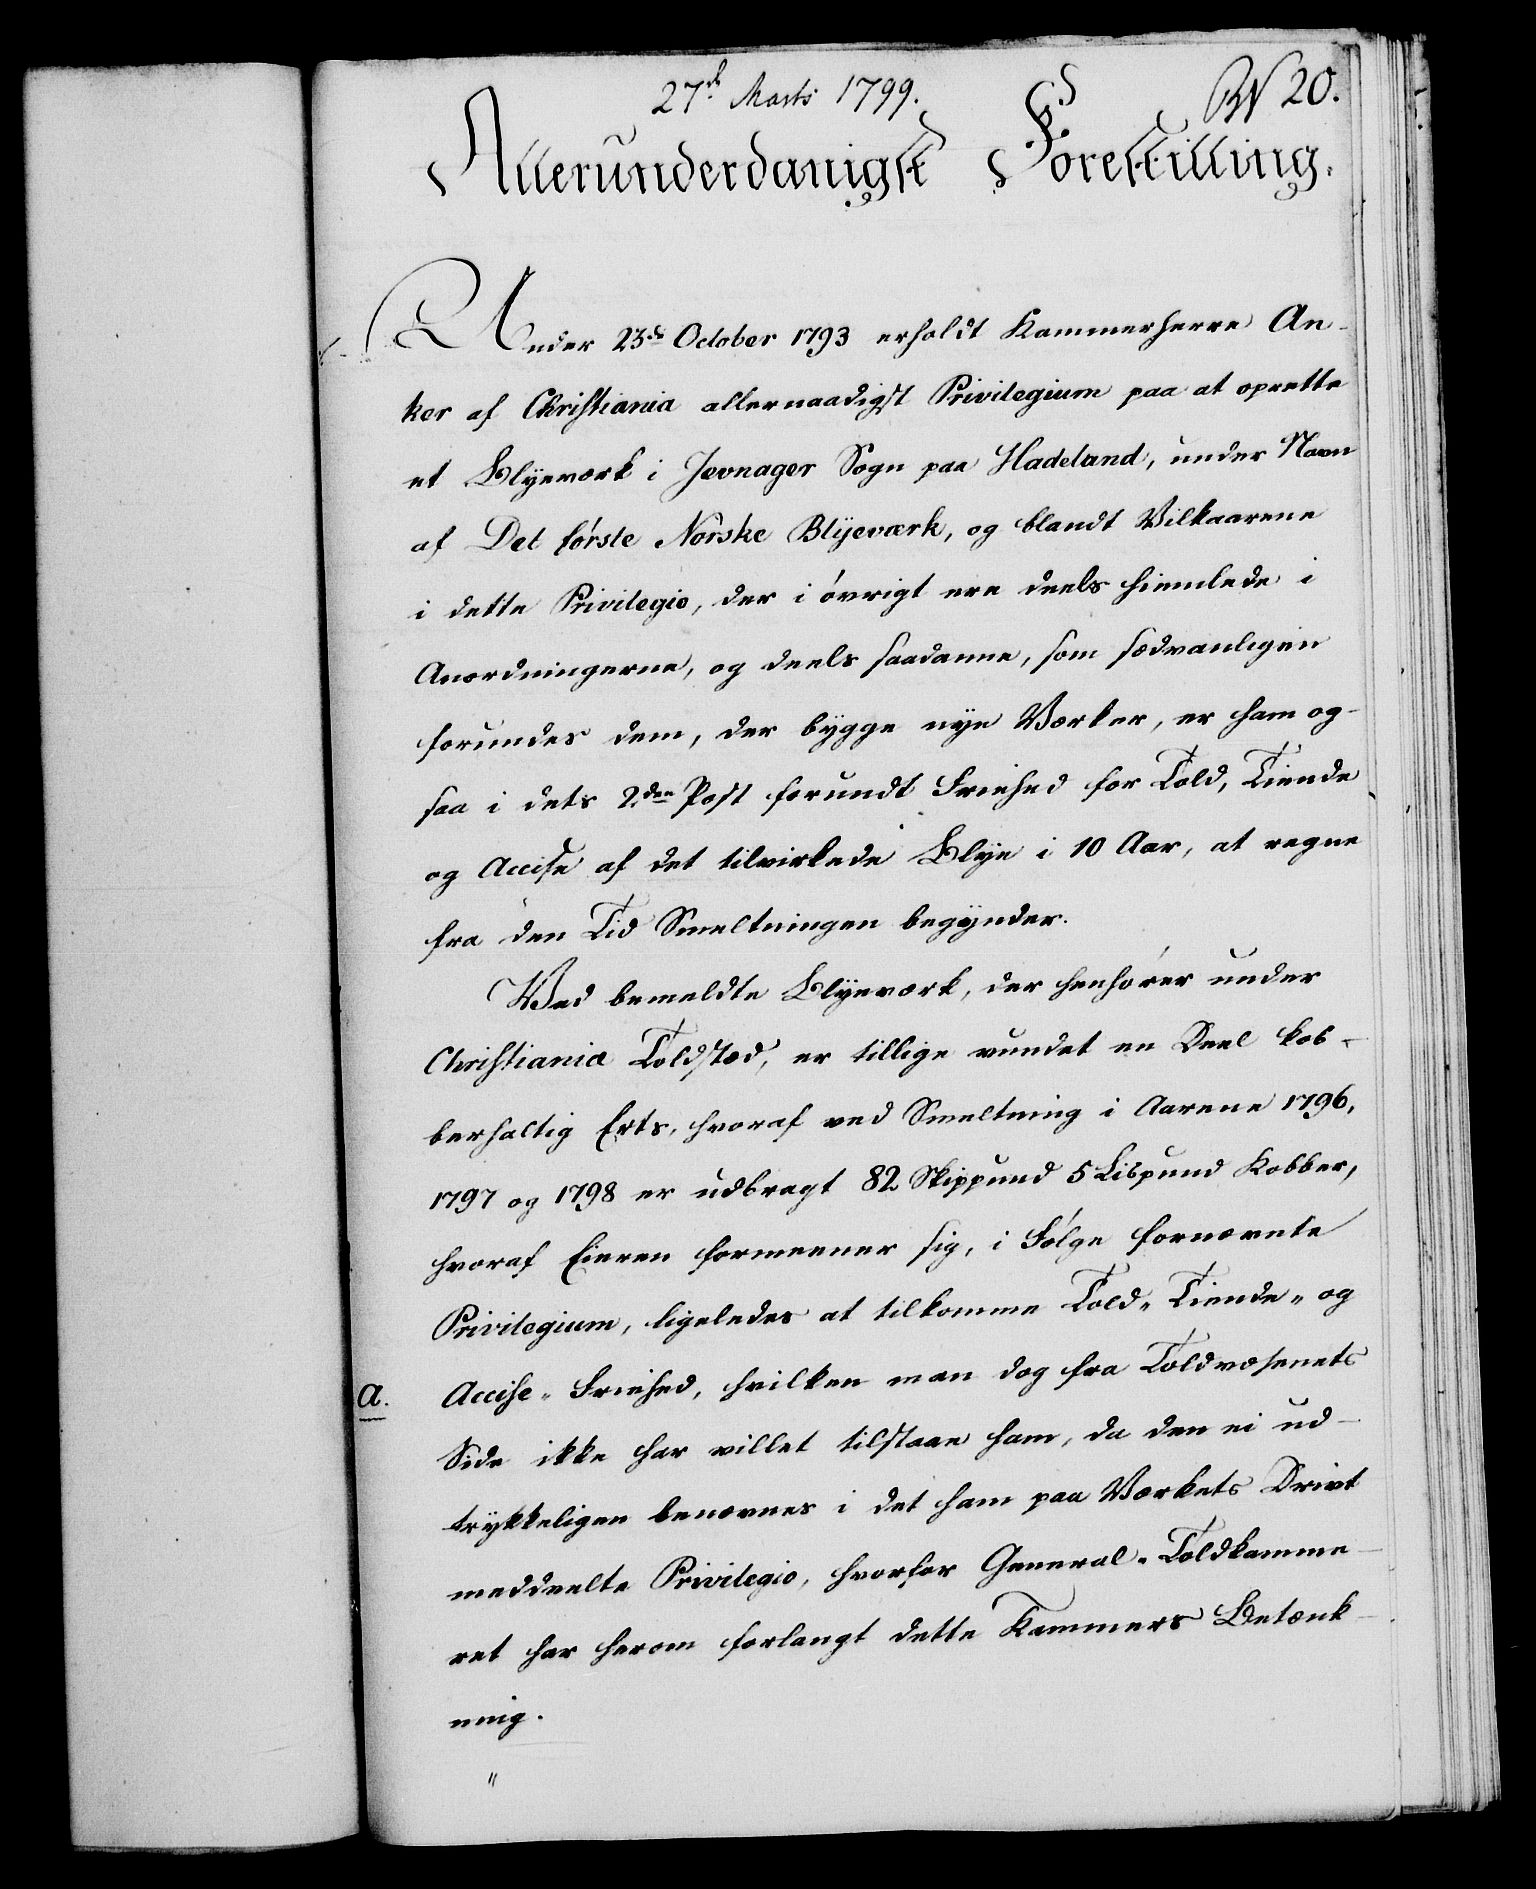 27d Marts 1799.
N 20.
Allerunderdanigst Forestilling.
Under 23de October 1793 erholdt Kammerherre An-
ker af Christiania allernaadigst Privilegium paa at oprette
et Blyeværk i Jevnager Sogn paa Hadeland, under Navn
af Det første Norske Blÿeværk, og blandt Vilkaarene
i dette Privilegio, der i øvrigt ere deels hiemlede i
Anordningerne, og deels saadanne, som sædvanligen
forundes dem, der bygge nye Værker, er ham og-
saa i dets 2den Post forundt Friehed for Told, Tiende
og Accise af det tilvirkede Blye i 10 Aar, at regne
fra den Tid Smeltningen begÿnder.
Ved bemeldte Blÿeværk, der henhører under
Christiania Toldstæd, er tillige vundet en Deel kob-
berholtig Erts, hvoraf ved Smeltning i Aarene 1796,
1797 og 1798 er udbragt 82 Skippund 5 Lispund Kobber,
hvoraf Eieren formeener sig, i Følge fornævnte
Privilegium, ligeledes at tilkomme Told- Tiende- og
a. Accise-Friehed, hvilken man dog fra Toldvæsenets
Side ikke har villet tilstaae ham, da den ei ud-
trÿkkeligen benævnes i det ham paa Værkets Drivt
meddeelte Privilegio, hvorfor General-Toldkamme-
ret har herom forlangt dette Kammers Betænk-
ning.
"